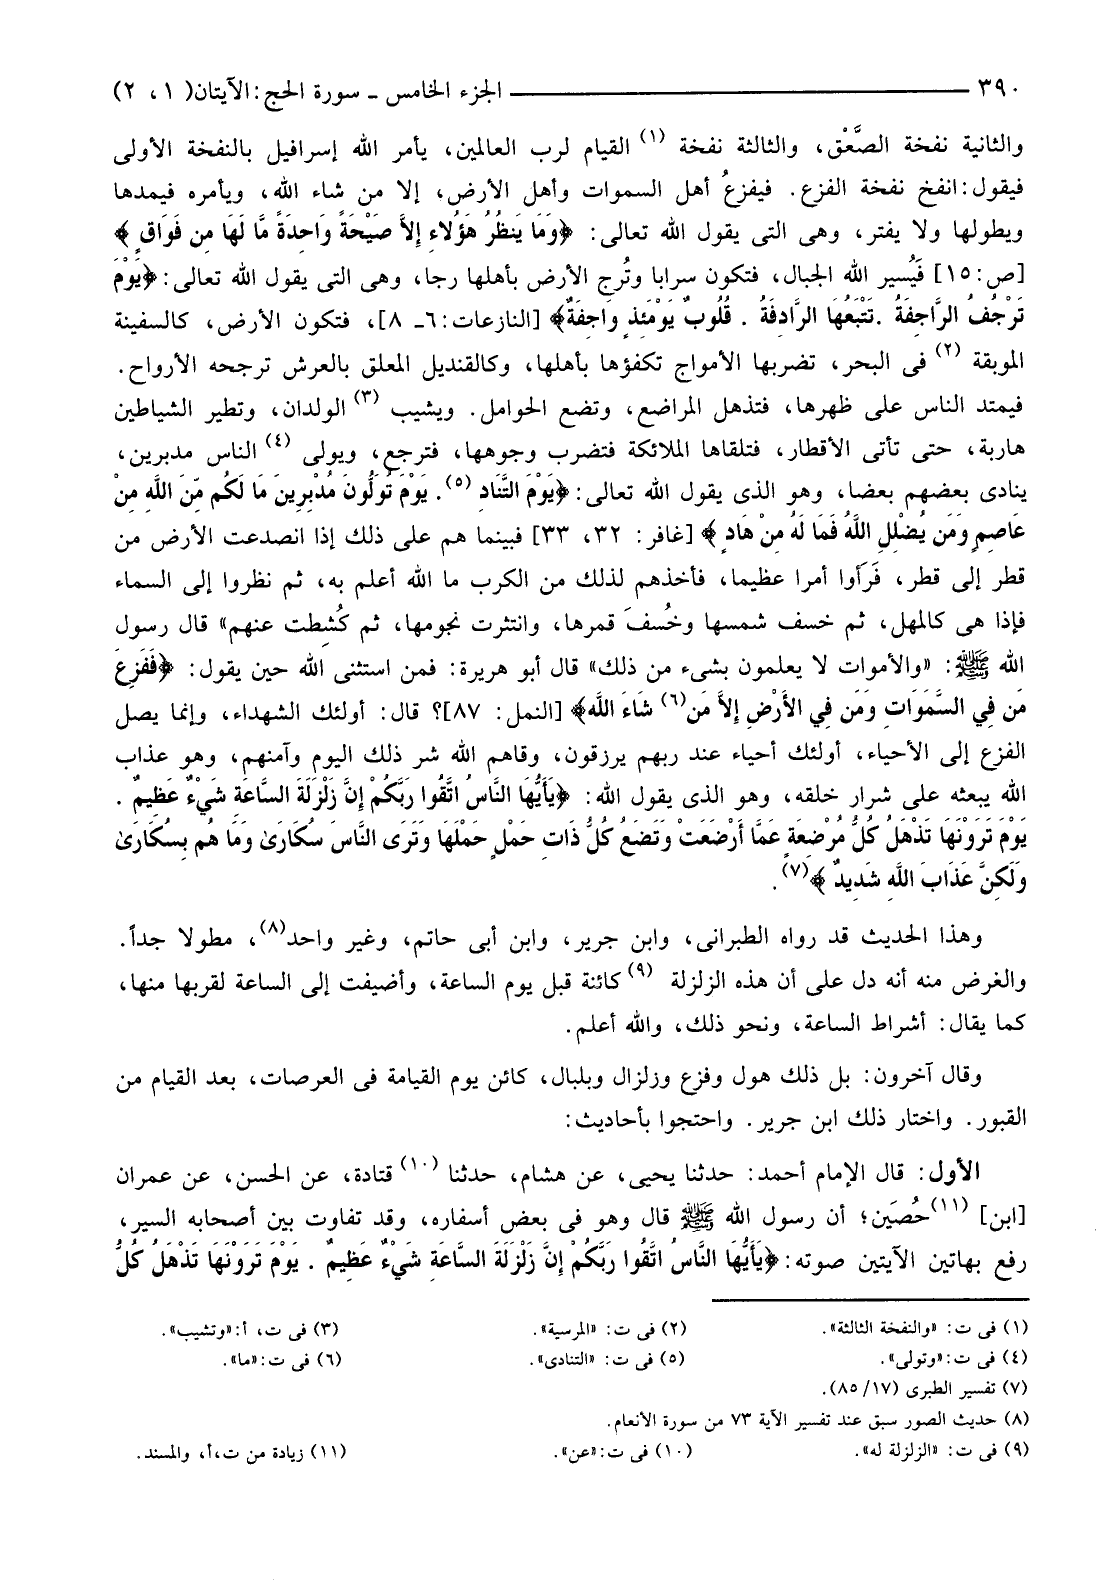 ٣٩٠ ــــــــــــــــ الجزء الخامس ـ سورة الحج: الآيتان( ١ ، ٢)
والثانية نفخة الصَّعْق، والثالثة نفخة (١) القيام لرب العالمين، يأمر الله إسرافيل بالنفخة الأولى
فيقول: انفخ نفخة الفزع. فيفزعُ أهل السموات وأهل الأرض، إلا من شاء الله، ويأمره فيمدها
ويطولها ولا يفتر، وهى التى يقول الله تعالى: ﴿وَمَا يَنظُرُ هَؤُلاءِ إِلاَّ صَيْحَةً وَاحِدَةً مَّا لَهَا مِن فَوَاقٍ ﴾
[ص: ١٥] فَيُسير الله الجبال، فتكون سرابا وتُرج الأرض بأهلها رجا، وهى التى يقول الله تعالى: ﴿يَوْمَ
تَرْجُفُ الرَّاجِفَةُ . تَتْبَعُهَا الرَّادِفَةُ . قُلُوبٌ يَوْمَئِذٍ وَاجِفَةٌ﴾ [النازعات: ٦ـ ٨]، فتكون الأرض، كالسفينة
الموبقة (٢) فى البحر، تضربها الأمواج تكفؤها بأهلها، وكالقنديل المعلق بالعرش ترجحه الأرواح.
فيمتد الناس على ظهرها، فتذهل المراضع، وتضع الحوامل. ويشيب (٣) الولدان، وتطير الشياطين
هاربة، حتى تأتى الأقطار، فتلقاها الملائكة فتضرب وجوهها، فترجع، ويولى (٤) الناس مدبرين،
ينادى بعضهم بعضا، وهو الذى يقول الله تعالى: ﴿يَوْمَ التَّنَادِ (٥). يَوْمَ تُوَلُّونَ مُدْبِرِينَ مَا لَكُم مِّنَ اللَّهِ مِنْ
عَاصِمٍ وَمَن يُضْلِلِ اللَّهُ فَمَا لَهُ مِنْ هَادٍ ﴾ [غافر: ٣٢، ٣٣] فبينما هم على ذلك إذا انصدعت الأرض من
قطر إلى قطر، فَرَأوا أمرا عظيما، فأخذهم لذلك من الكرب ما الله أعلم به، ثم نظروا إلى السماء
فإذا هى كالمهل، ثم خسف شمسها وخُسفَ قمرها، وانتثرت نجومها، ثم كُشِطت عنهم» قال رسول
الله ﷺ: «والأموات لا يعلمون بشىء من ذلك» قال أبو هريرة: فمن استثنى الله حين يقول: ﴿فَفَزِعَ
مَن فِي السَّمَوَاتِ وَمَن فِي الأَرْضِ إِلاَّ مَن(٦) شَاءَ اللَّه﴾ [النمل: ٨٧]؟ قال: أولئك الشهداء، وإنما يصل
الفزع إلى الأحياء، أولئك أحياء عند ربهم يرزقون، وقاهم الله شر ذلك اليوم وآمنهم، وهو عذاب
الله يبعثه على شرار خلقه، وهو الذى يقول الله: ﴿يَأَيُّهَا النَّاسُ اتَّقُوا رَبَّكُمْ إِنَّ زَلْزَلَةَ السَّاعَةِ شَيْءٌ عَظِيمٌ .
يَوْمَ تَرَوْنَهَا تَذْهَلُ كُلُّ مُرْضِعَةٍ عَمَّا أَرْضَعَتْ وَتَضَعُ كُلُّ ذَاتِ حَمْلٍ حَمْلَهَا وَتَرَى النَّاسَ سُكَارَىٰ وَمَا هُم بِسُكَارَىٰ
وَلَكِنَّ عَذَابَ اللَّهِ شَدِيدٌ ﴾(٧).
وهذا الحديث قد رواه الطبرانى، وابن جرير، وابن أبى حاتم، وغير واحد(٨)، مطولا جداً.
والغرض منه أنه دل على أن هذه الزلزلة (٩) كائنة قبل يوم الساعة، وأضيفت إلى الساعة لقربها منها،
كما يقال: أشراط الساعة، ونحو ذلك، والله أعلم.
وقال آخرون: بل ذلك هول وفزع وزلزال وبلبال، كائن يوم القيامة فى العرصات، بعد القيام من
القبور. واختار ذلك ابن جرير. واحتجوا بأحاديث:
الأول: قال الإمام أحمد: حدثنا يحيى، عن هشام، حدثنا (١٠) قتادة، عن الحسن، عن عمران
[ابن] (١١) حُصَين؛ أن رسول الله ﷺ قال وهو فى بعض أسفاره، وقد تفاوت بين أصحابه السير،
رفع بهاتين الآيتين صوته: ﴿يَأَيُّهَا النَّاسُ اتَّقُوا رَبَّكُمْ إِنَّ زَلْزَلَةَ السَّاعَةِ شَيْءٌ عَظِيمٌ . يَوْمَ تَرَوْنَهَا تَذْهَلُ كُلُّ
(١) فى ت: «والنفخة الثالثة». (٢) فى ت: «المرسية». (٣) فى ت، أ: «وتشيب».
(٤) فى ت: «وتولى». (٥) فى ت: «التنادى». (٦) فى ت: «ما».
(٧) تفسير الطبرى (١٧/ ٨٥).
(٨) حديث الصور سبق عند تفسير الآية ٧٣ من سورة الأنعام.
(٩) فى ت: «الزلزلة له». (١٠) فى ت: «عن». (١١) زيادة من ت،أ، والمسند.